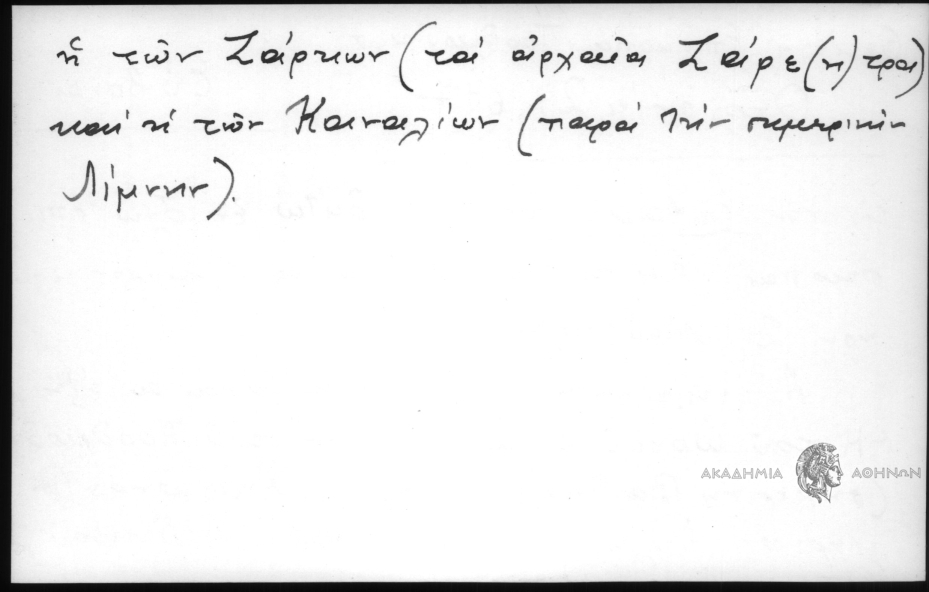 ἢ τῶν Ζάρκων (τὰ ἀρχαῖα Ζάρε(η)τρα)
καὶ ἡ τῶν Καναλίων (παρὰ τὴν σημερινὴν
Λίμνην).
ΑΚΑΔΗΜΙΑ ΑΘΗΝΩΝ